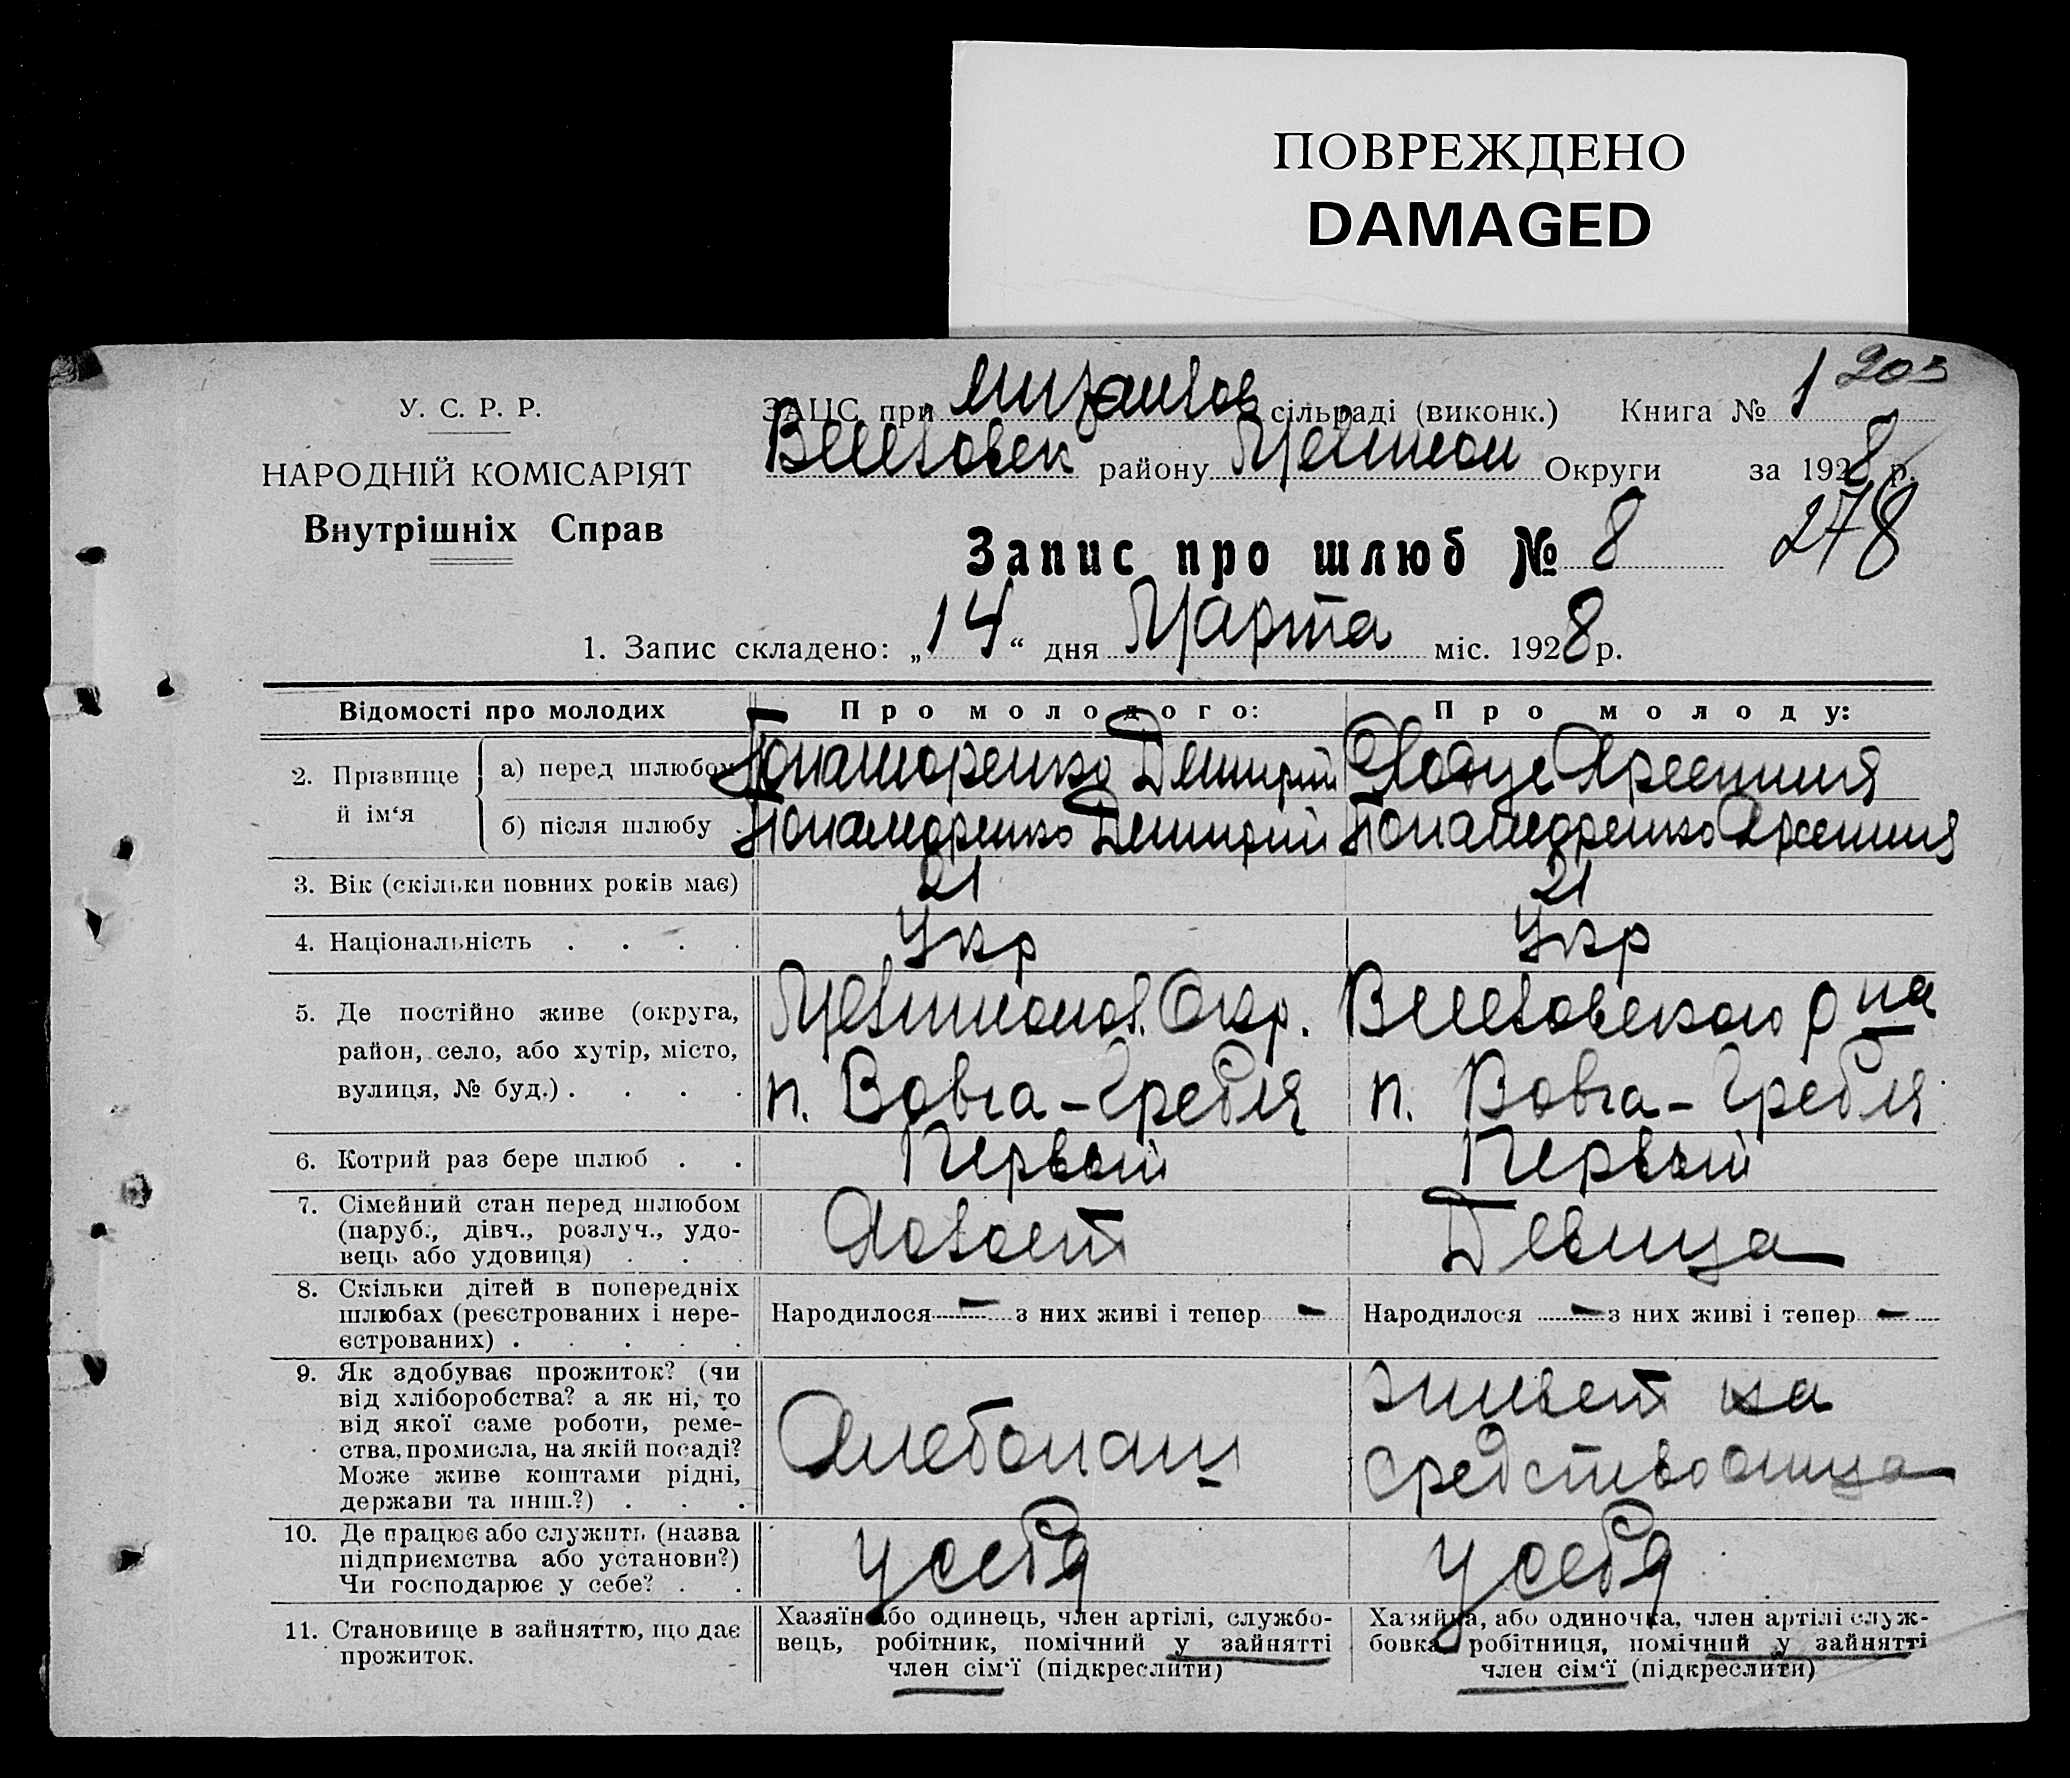 ПОВРЕЖДЕНО
DAMAGED
203
У. С. Р. Р.
ЗАЦС при сільраді (виконк.) Книга № 1
району Округи за 1928 р.
НАРОДНІЙ КОМІСАРІЯТ
Внутрішніх Справ
Запис про шлюб № 8 278
1. Запис складено: „14“ дня Марта міс. 1928 р.
Відомості про молодих Про молодого: Про молоду:
2. Прізвище й ім‘я
а) перед шлюбом Понаморенко Дмитрий
б) після шлюбу Понаморенко Дмитрий Понаморенко
3. Вік (скільки повних років має) 21 21
4. Національність . . . . Укр Укр
5. Де постійно живе (округа,
район, село, або хутір, місто,
вулиця, № буд.) . . . .
Окр.
п. Вовча-Гребля п. Вовча-Гребля
6. Котрий раз бере шлюб . . Первый Первый
7. Сімейний стан перед шлюбом
(паруб., дівч., розлуч., удо-
вець або удовиця) . . .
Холост Девица
8. Скільки дітей в попередніх
шлюбах (реєстрованих і нере-
єстрованих) . . . . .
Народилося — з них живі і тепер — Народилося — з них живі і тепер —
9. Як здобуває прожиток? (чи
від хліборобства? а як ні, то
від якої саме роботи, реме-
ства, промисла, на якій посаді?
Може живе коштами рідні,
держави та инш.?) . . .
Хлебопаш
живет на
средство отца
10. Де працює або служить (назва
підприємства або установи?)
Чи господарює у себе? . .
у себя у себя
11. Становище в зайняттю, що дає
прожиток.
Хазяїн або одинець, член артілі, службо-
вець, робітник, помічний у зайнятті
член сім‘ї (підкреслити)
Хазяйка, або одиночка, член артілі служ-
бовка робітниця, помічний у зайнятті
член сім‘ї (підкреслити)